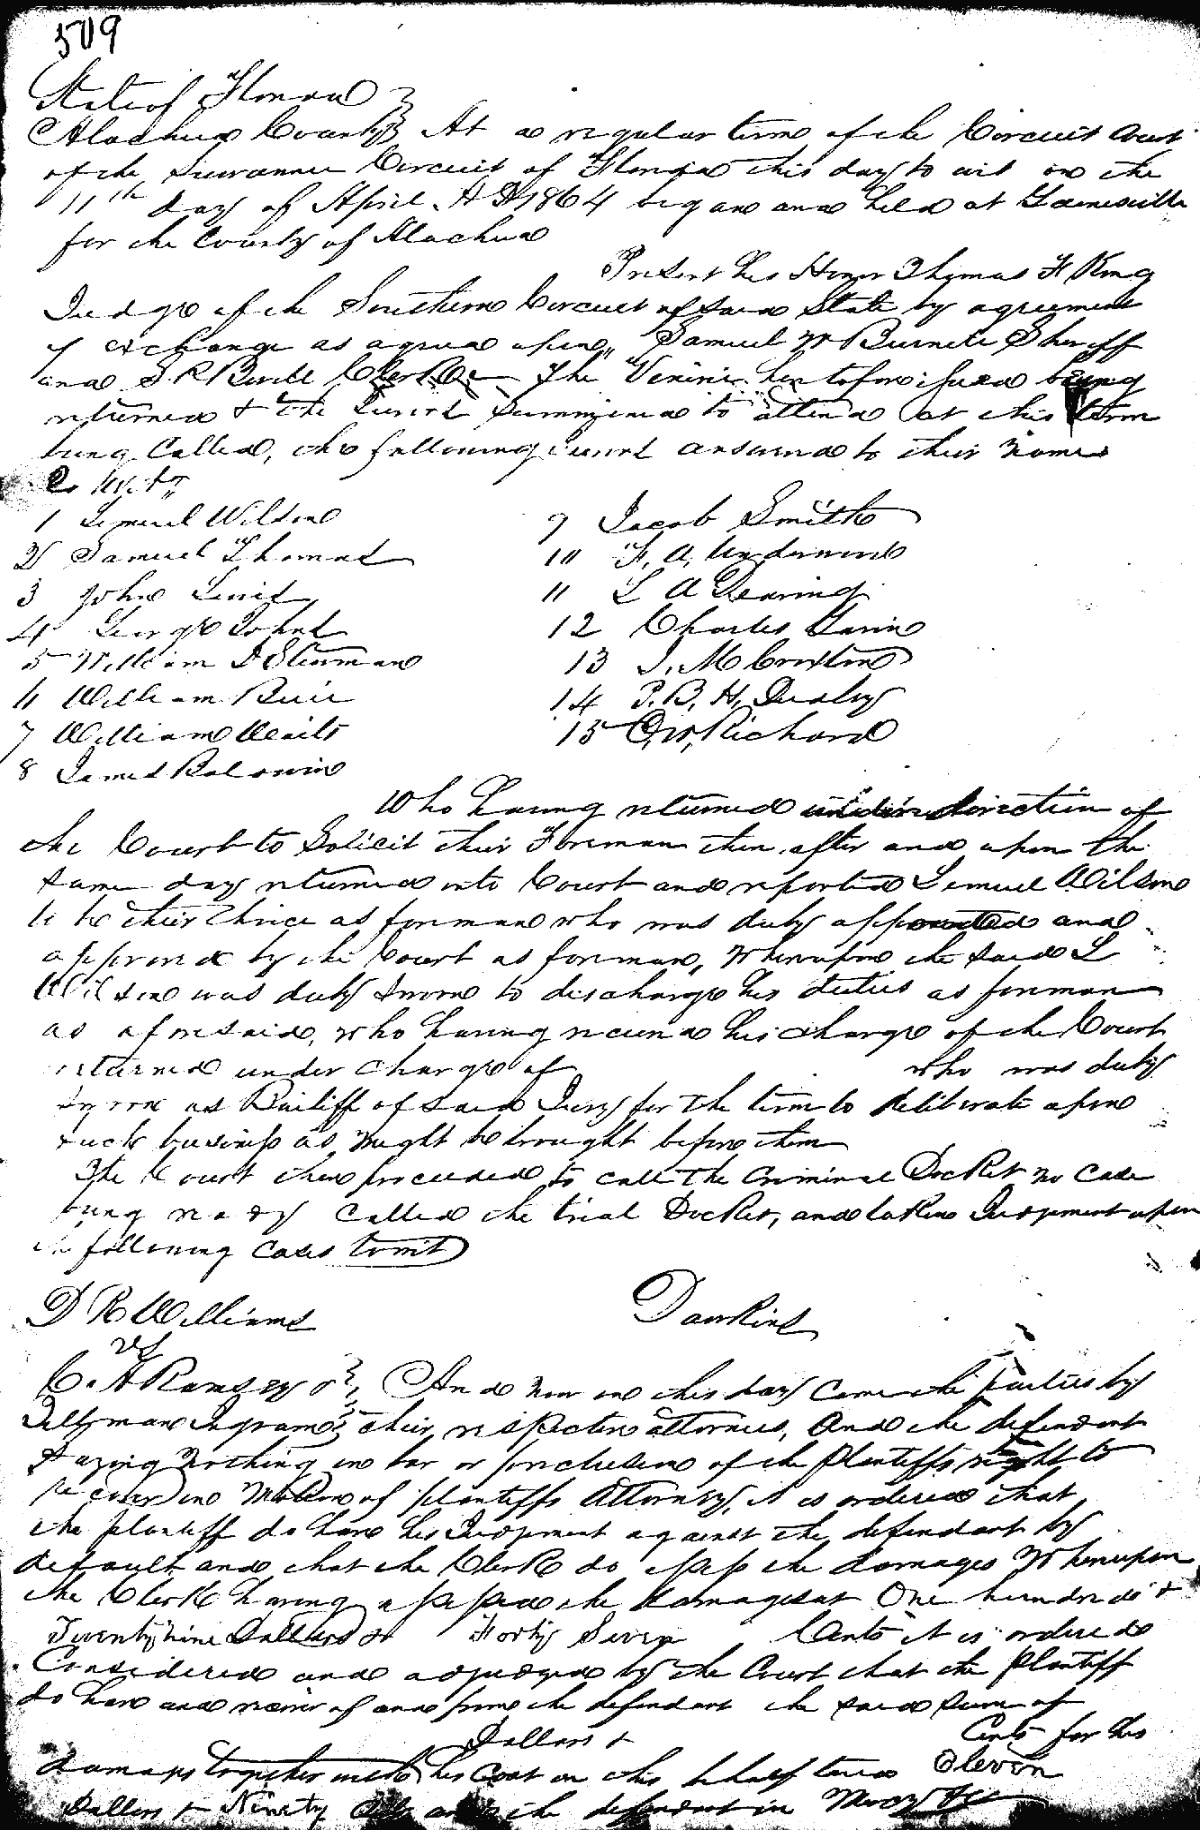 509
State of Florida }
Alachua County } At a regular term of the Circuit Court
of the Suwannee Circuit of Florida this day to wit on the
11th day of April A D 1864 began and held at Gainesville
for the County of Alachua
Present his Honor Thomas F King
Judge of the Southern Circuit of said State by agreement
of exchange as agreed upon, Samuel W Burnett Sheriff
and S. R Bevill Clerk The Venire heretofore issued being
returned & the Jurors summoned to attend at this term
being Called, the following jurors answered to their names
To wit"
1 Lemuel Wilson
2 Samuel Thomas
3 John Lewis
4 George Johns
5 William D Stearman
6 William
7 William
8 James Baldwin
9 Jacob Smith
10 F. A. Underwood
11 L A Dearing
12 Charles
13 J. M Croxton
14 P. B. H. Dudley
15 C, W, Richard
Who having returned under direction of
the Court to Solicit their Foreman then after and upon the
same day returned into Court and reported Lemuel Wilson
to be their Choice as foreman who was duly appointed and
approved by the Court as foreman, Whereupon the said L
Wilson was duly sworn to discharge his duties as foreman
as aforesaid, who having received his charge of the Court
returned under charge of who was duly
sworn as Bailiff of said Jury for the term to deliberate upon
such business as might be brought before them
The Court then proceeded to call the Criminal Docket no case
being ready Called the trial Docket, and taken Judgement upon
the following Cases towit
D R Williams Dawkins
vs
C. A Ramsey or }, And now on this day came the parties by
Tillman Ingram } their respective attornies, And the defendant
Saying Nothing in bar or preclusion of the Plantiffs right to
recover on Motion of plantiffs Attorney, it is ordered that
the plantiff do have his Judgment against the defendant by
default and that the Clerk do assess the damages Whereupon
the Clerk having assessed the damages at One hundred &
Twenty nine Dollars & Forty Seven Cents it is ordered
Considered and adjudged by the Court that the plantiff
do have and recover of and from the defendant the said sum of
Dollars & Cents for his
damages together with his Cost on this behalf taxed Eleven
Dollars & Ninety Cents and the defendant in Mercy &c